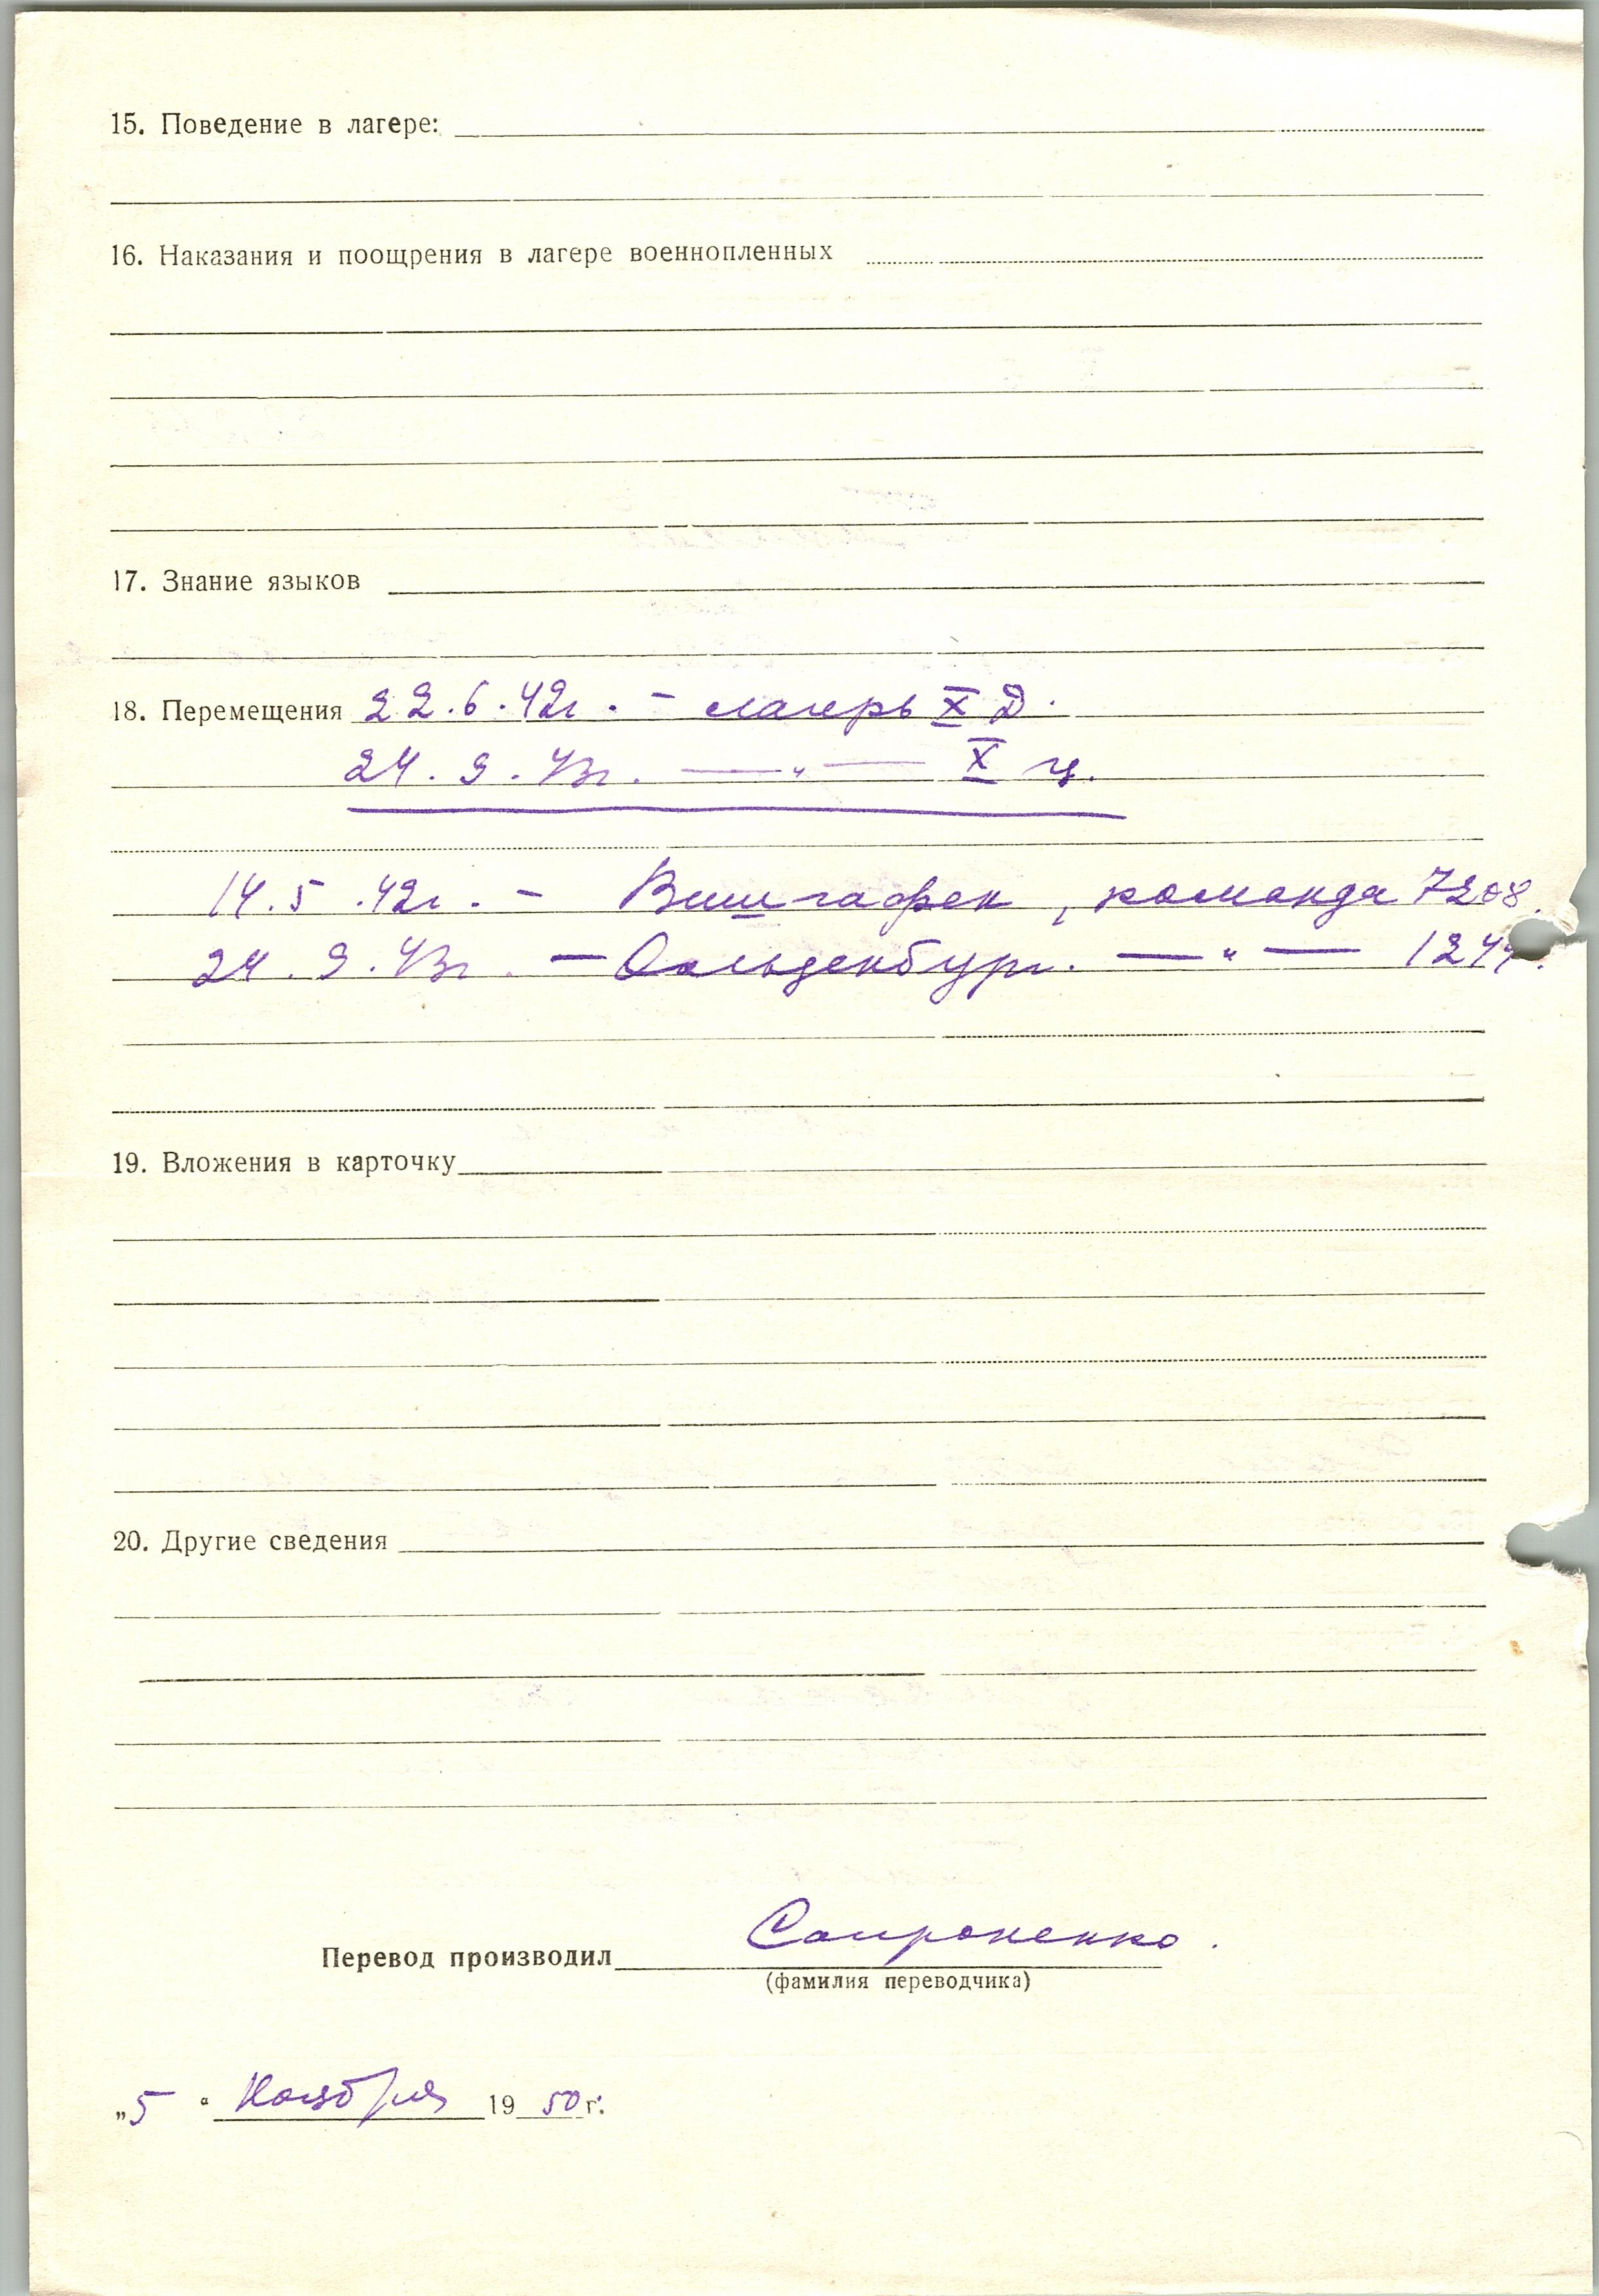 15. Поведение в лагере:
16. Наказания и поощрения в лагере военнопленных
17. Знание языков
18. Перемещения 22.6.42г. – лагерь X Д.
24.9.43г. —„— X Ц.
14.5.42г. – команда 7208.
24.9.43г. – Ольденбург. —„—
19. Вложения в карточку
20. Другие сведения
Перевод производил
(фамилия переводчика)
„5“ Ноября 1950г.